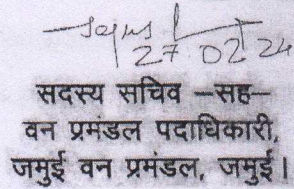 27.02.24
सदस्य सचिव –सह–
वन प्रमंडल पदाधिकारी,
जमुई वन प्रमंडल, जमुई।